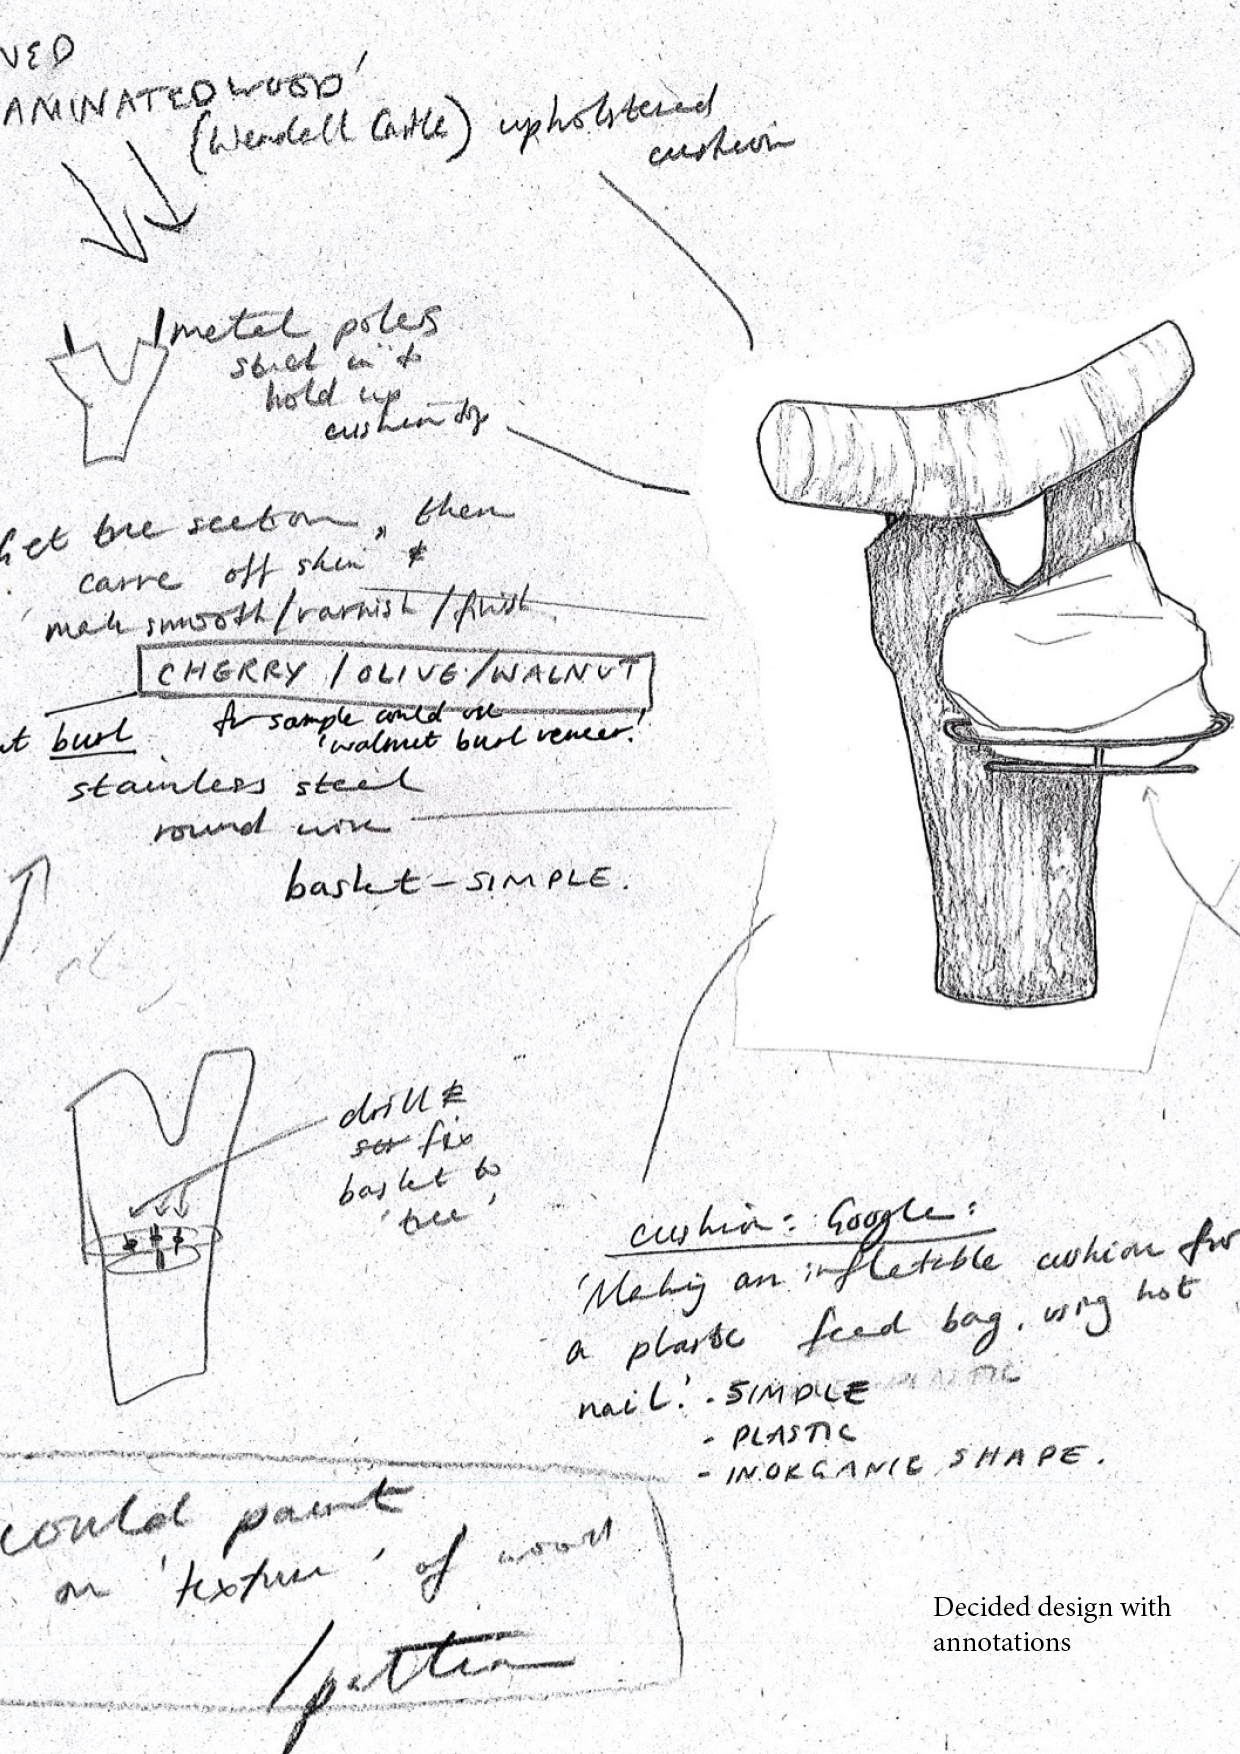 VED
AMINATEDWOOD'
(Wendell Castle) upholstered
cushion
metal poles
stuck in to
hold up
cushion top
Get tree section, then
carve off skin &
make smooth/varnish/finish
CHERRY /OLIVE/WALNUT
burl
for sample could use
'walnut burl veneer!'
stainless steel
round wire
basket - SIMPLE.
drill &
fix
basket to
'tree'
cushion: Google:
'Making an inflatable cushion for
a plastic feed bag, using hot
nail.' - SIMPLE
- PLASTIC
- INORGANIC SHAPE.
could paint
on 'texture' of wood
/pattern
Decided design with
annotations